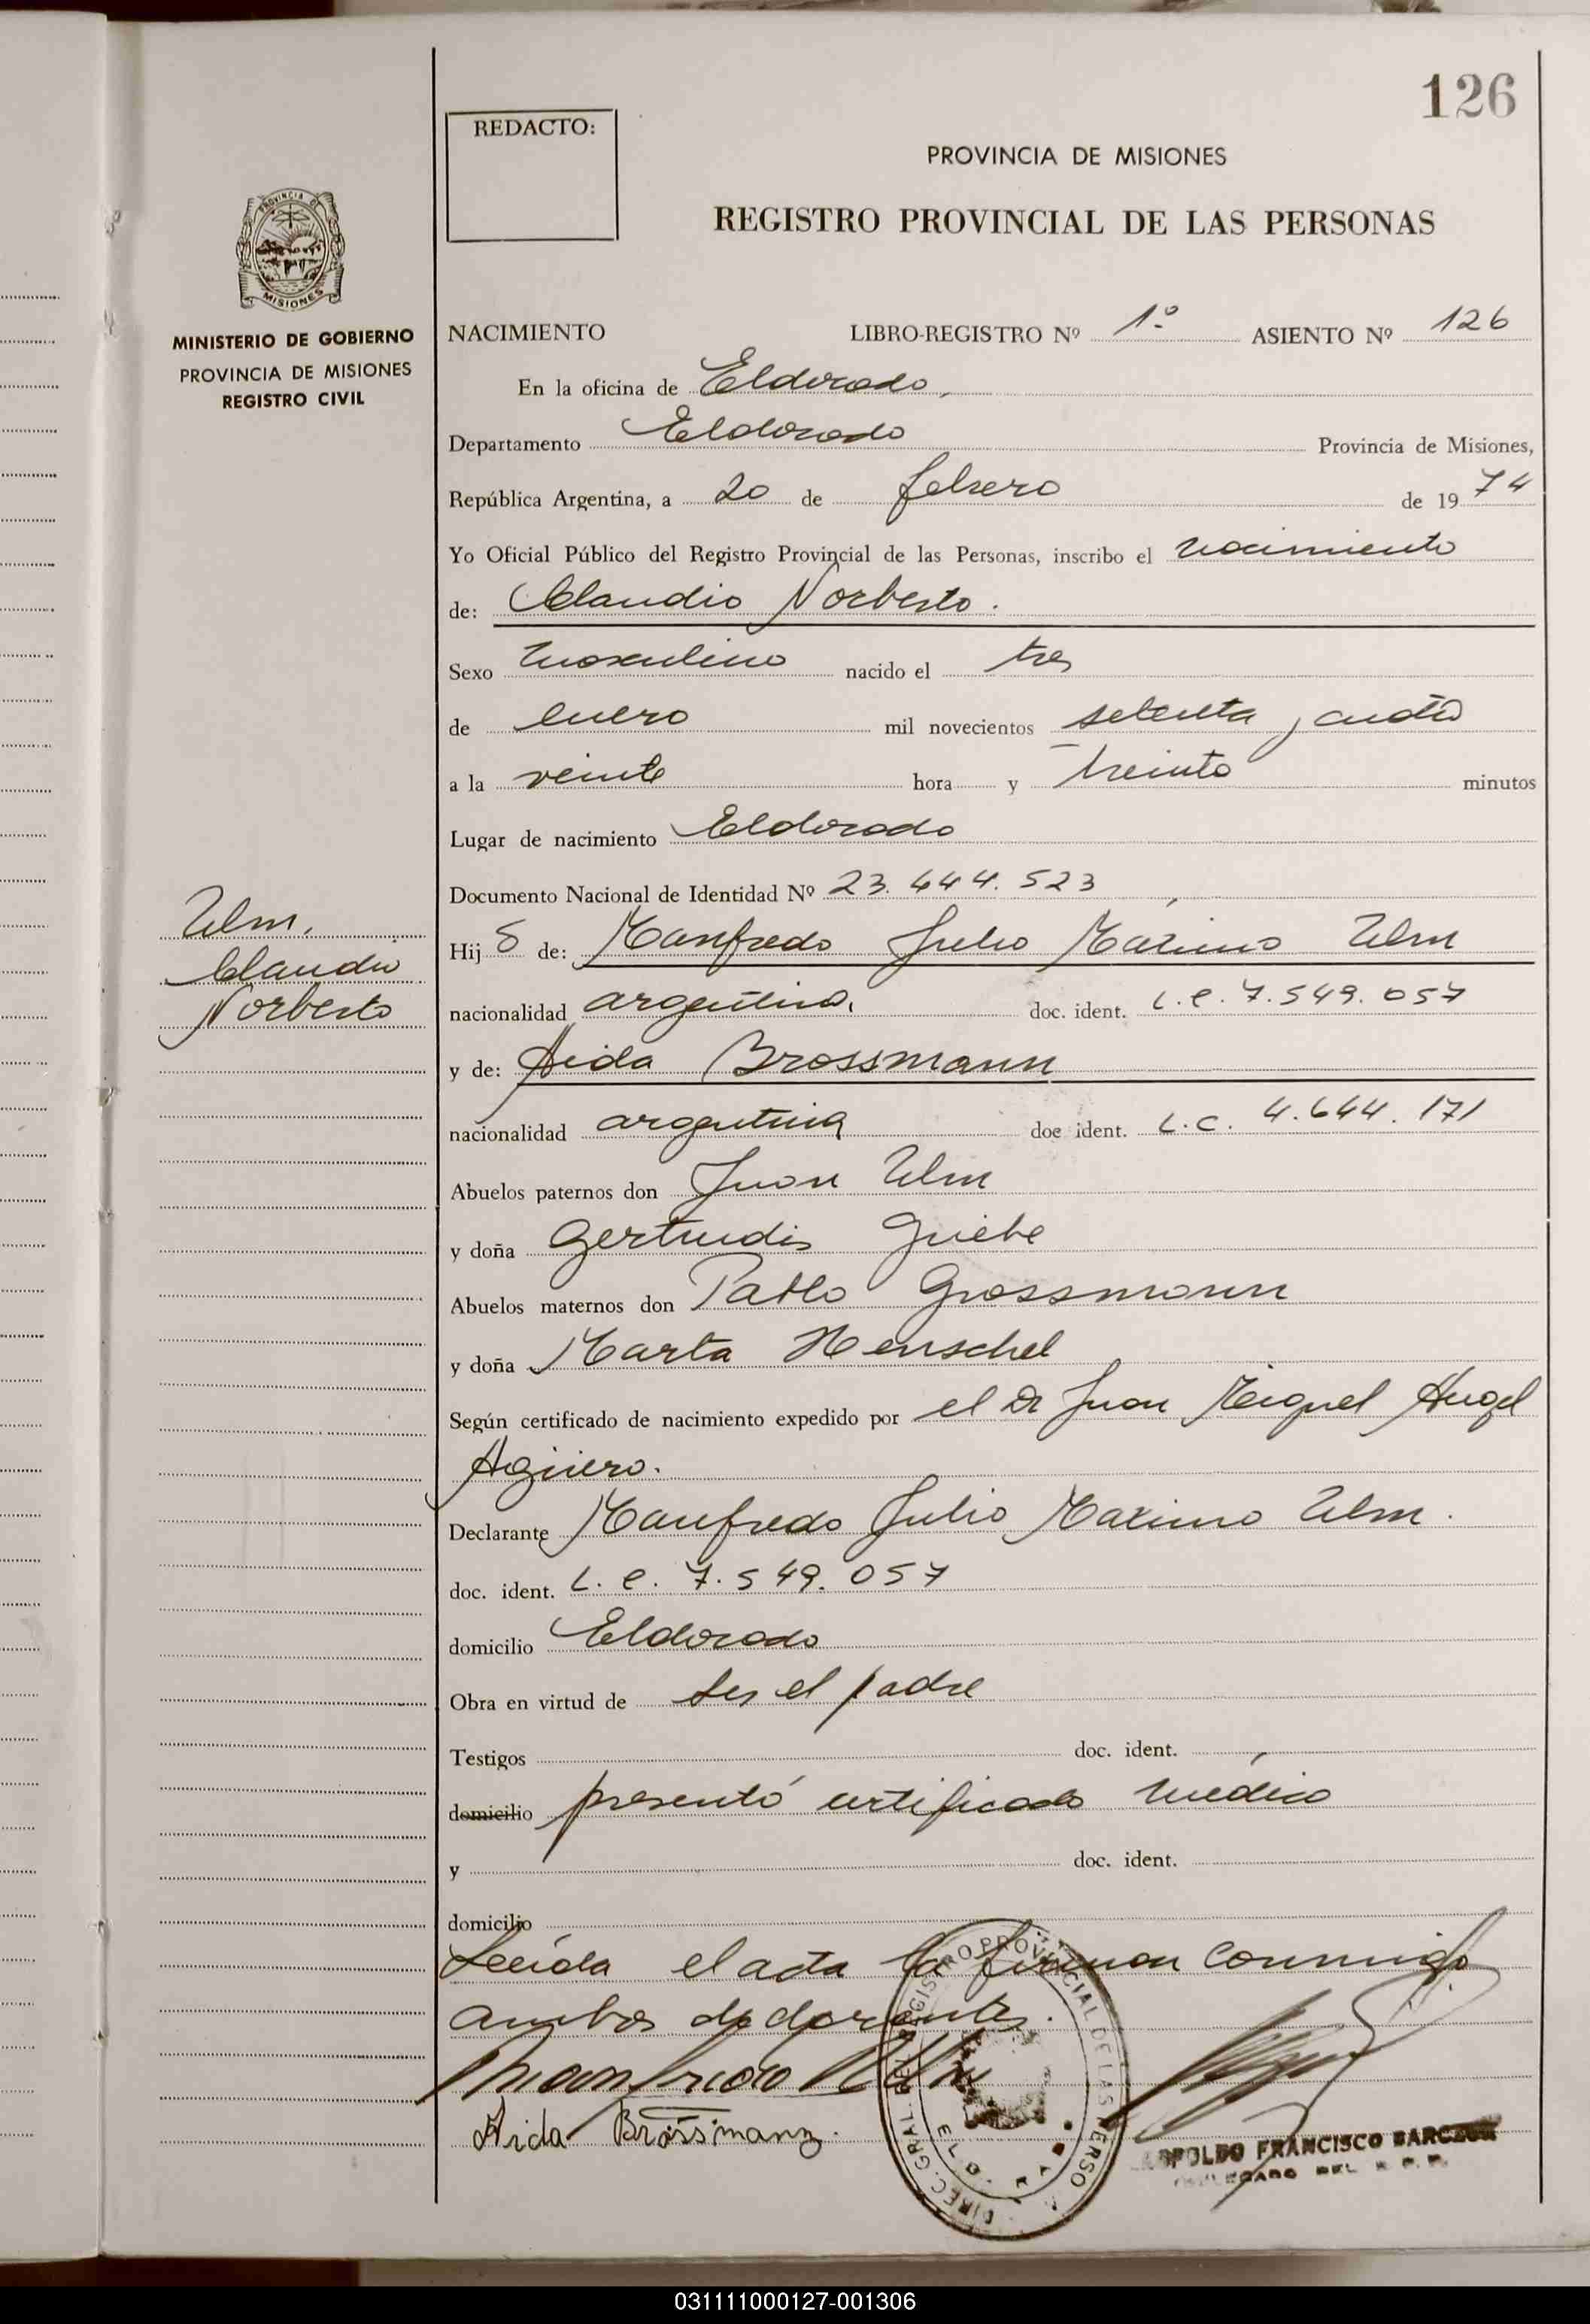 126
REDACTO:
PROVINCIA DE MISIONES
REGISTRO PROVINCIAL DE LAS PERSONAS
PROVINCIA DE
MISIONES
MINISTERIO DE GOBIERNO
PROVINCIA DE MISIONES
REGISTRO CIVIL
NACIMIENTO LIBRO-REGISTRO Nº 1º ASIENTO Nº 126
En la oficina de Eldorado,
Departamento Eldorado Provincia de Misiones,
República Argentina, a 20 de febrero de 1974
Yo Oficial Público del Registro Provincial de las Personas, inscribo el nacimiento
de: Claudio Norberto.
Sexo masculino nacido el tres
de enero mil novecientos setenta y cuatro
a la veinte hora y treinta minutos
Lugar de nacimiento Eldorado
Documento Nacional de Identidad Nº 23.444.523
Ulm,
Claudio
Norberto
Hijo de: Manfredo Julio Máximo Ulm
nacionalidad argentina, doc. ident. L.E. 7.549.057
y de: Aida Brossmann
nacionalidad argentina doc ident. L.C. 4.644.171
Abuelos paternos don Juan Ulm
y doña Gertrudis Griebe
Abuelos maternos don Pablo Grossmann
y doña Marta Henschel
Según certificado de nacimiento expedido por el Dr Juan Miguel Angel
Agüero.
Declarante Manfredo Julio Maximo Ulm.
doc. ident. L.E. 7.549.057
domicilio Eldorado
Obra en virtud de ser el padre
Testigos doc. ident.
domicilio presentó certificado médico
y doc. ident.
domicilio
Leída el acta la firman conmigo
ambos declarantes.
Manfredo Ulm
Aida Brossmann.
DIREC. GRAL. DEL REGISTRO PROVINCIAL DE LAS PERSO
LEOPOLDO FRANCISCO BARCZUK
DELEGADO DEL R. P. P.
031111000127-001306